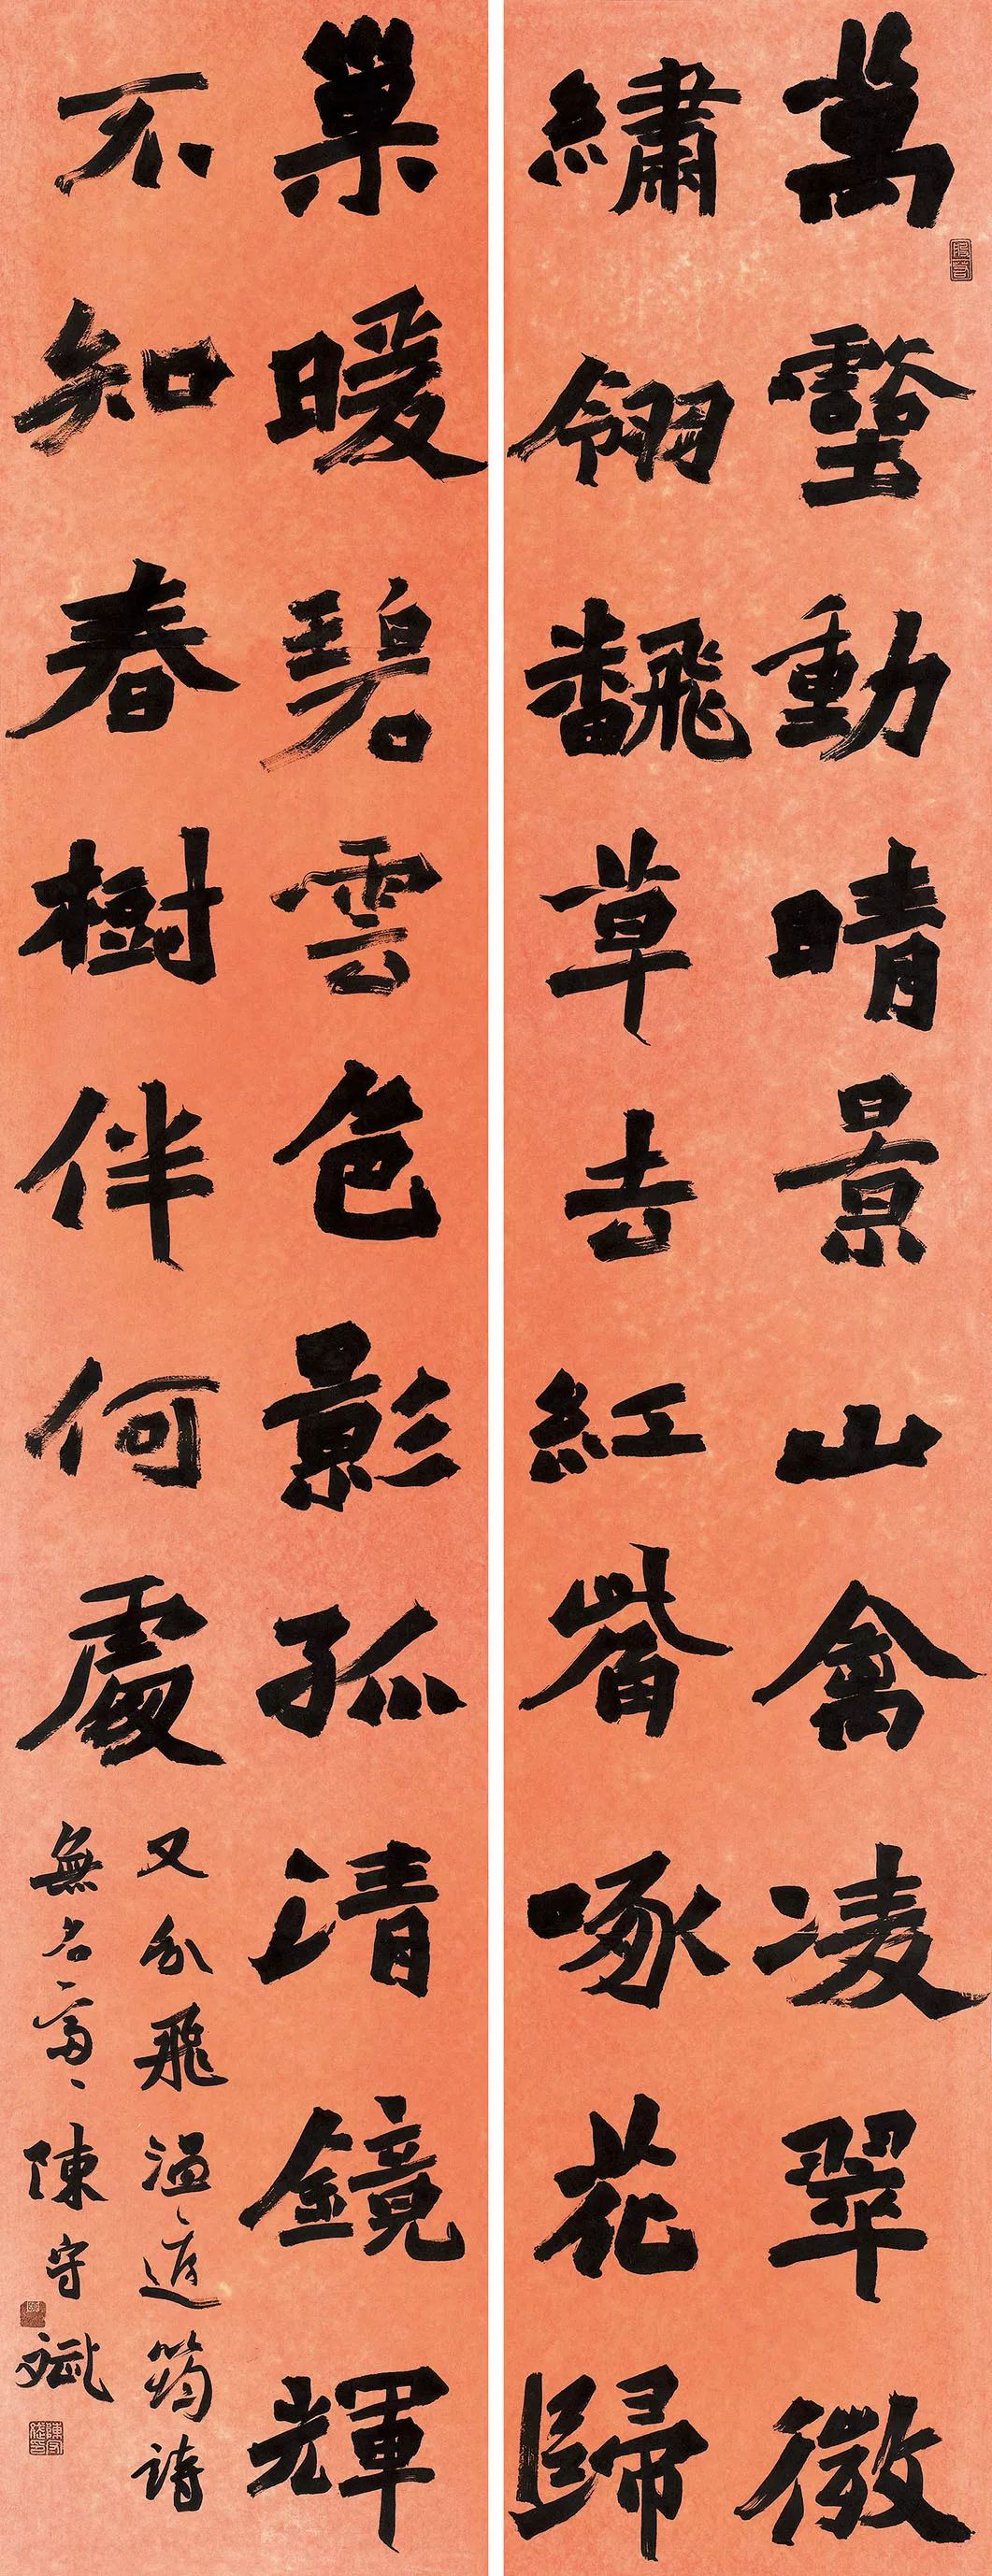 萬壑動晴景山禽凌翠微
繡翎飜草去紅觜啄花歸
巢暖碧雲色影孤清鏡輝
不知春樹伴何處
又分飛溫庭筠詩
無名齋陳守斌